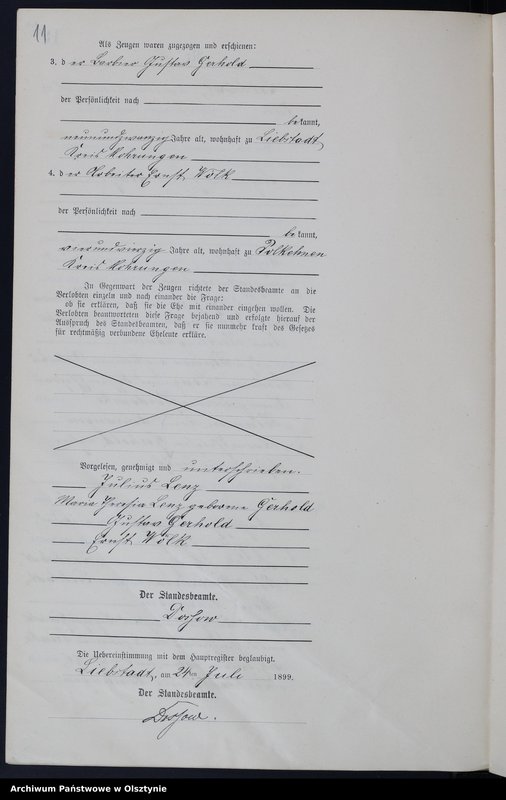 11
Als Zeugen waren zugezogen und erschienen:
3. der Barbier Gustav Gerhold
der Persönlichkeit nach
bekannt,
neunundzwanzig Jahre alt, wohnhaft zu Liebstadt,
Kreis Mohrungen
4. der Arbeiter Ernst Wölk
der Persönlichkeit nach
bekannt,
vierundvierzig Jahre alt, wohnhaft zu Polkehnen
Kreis Mohrungen
In Gegenwart der Zeugen richtete der Standesbeamte an die
Verlobten einzeln und nach einander die Frage:
ob sie erklären, daß sie die Ehe mit einander eingehen wollen. Die
Verlobten beantworteten diese Frage bejahend und erfolgte hierauf der
Ausspruch des Standesbeamten, daß er sie nunmehr kraft des Gesetzes
für rechtmäßig verbundene Eheleute erkläre.
Vorgelesen, genehmigt und unterschrieben.
Julius Lenz
Maria Theresia Lenz geborene Gerhold
Gustav Gerhold
Ernst Wölk
Der Standesbeamte.
Dossow
Die Uebereinstimmung mit dem Hauptregister beglaubigt.
Liebstadt, am 24ten Juli 1899.
Der Standesbeamte.
Dossow.
Archiwum Państwowe w Olsztynie